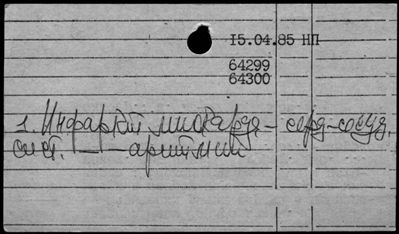 15.04.85 НП
64299
64300
1. Инфаркт миокарда - серд-сосуд.
сист. - - аритмии